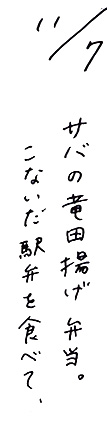 11/7
サバの竜田揚げ弁当。
こないだ駅弁を食べて、